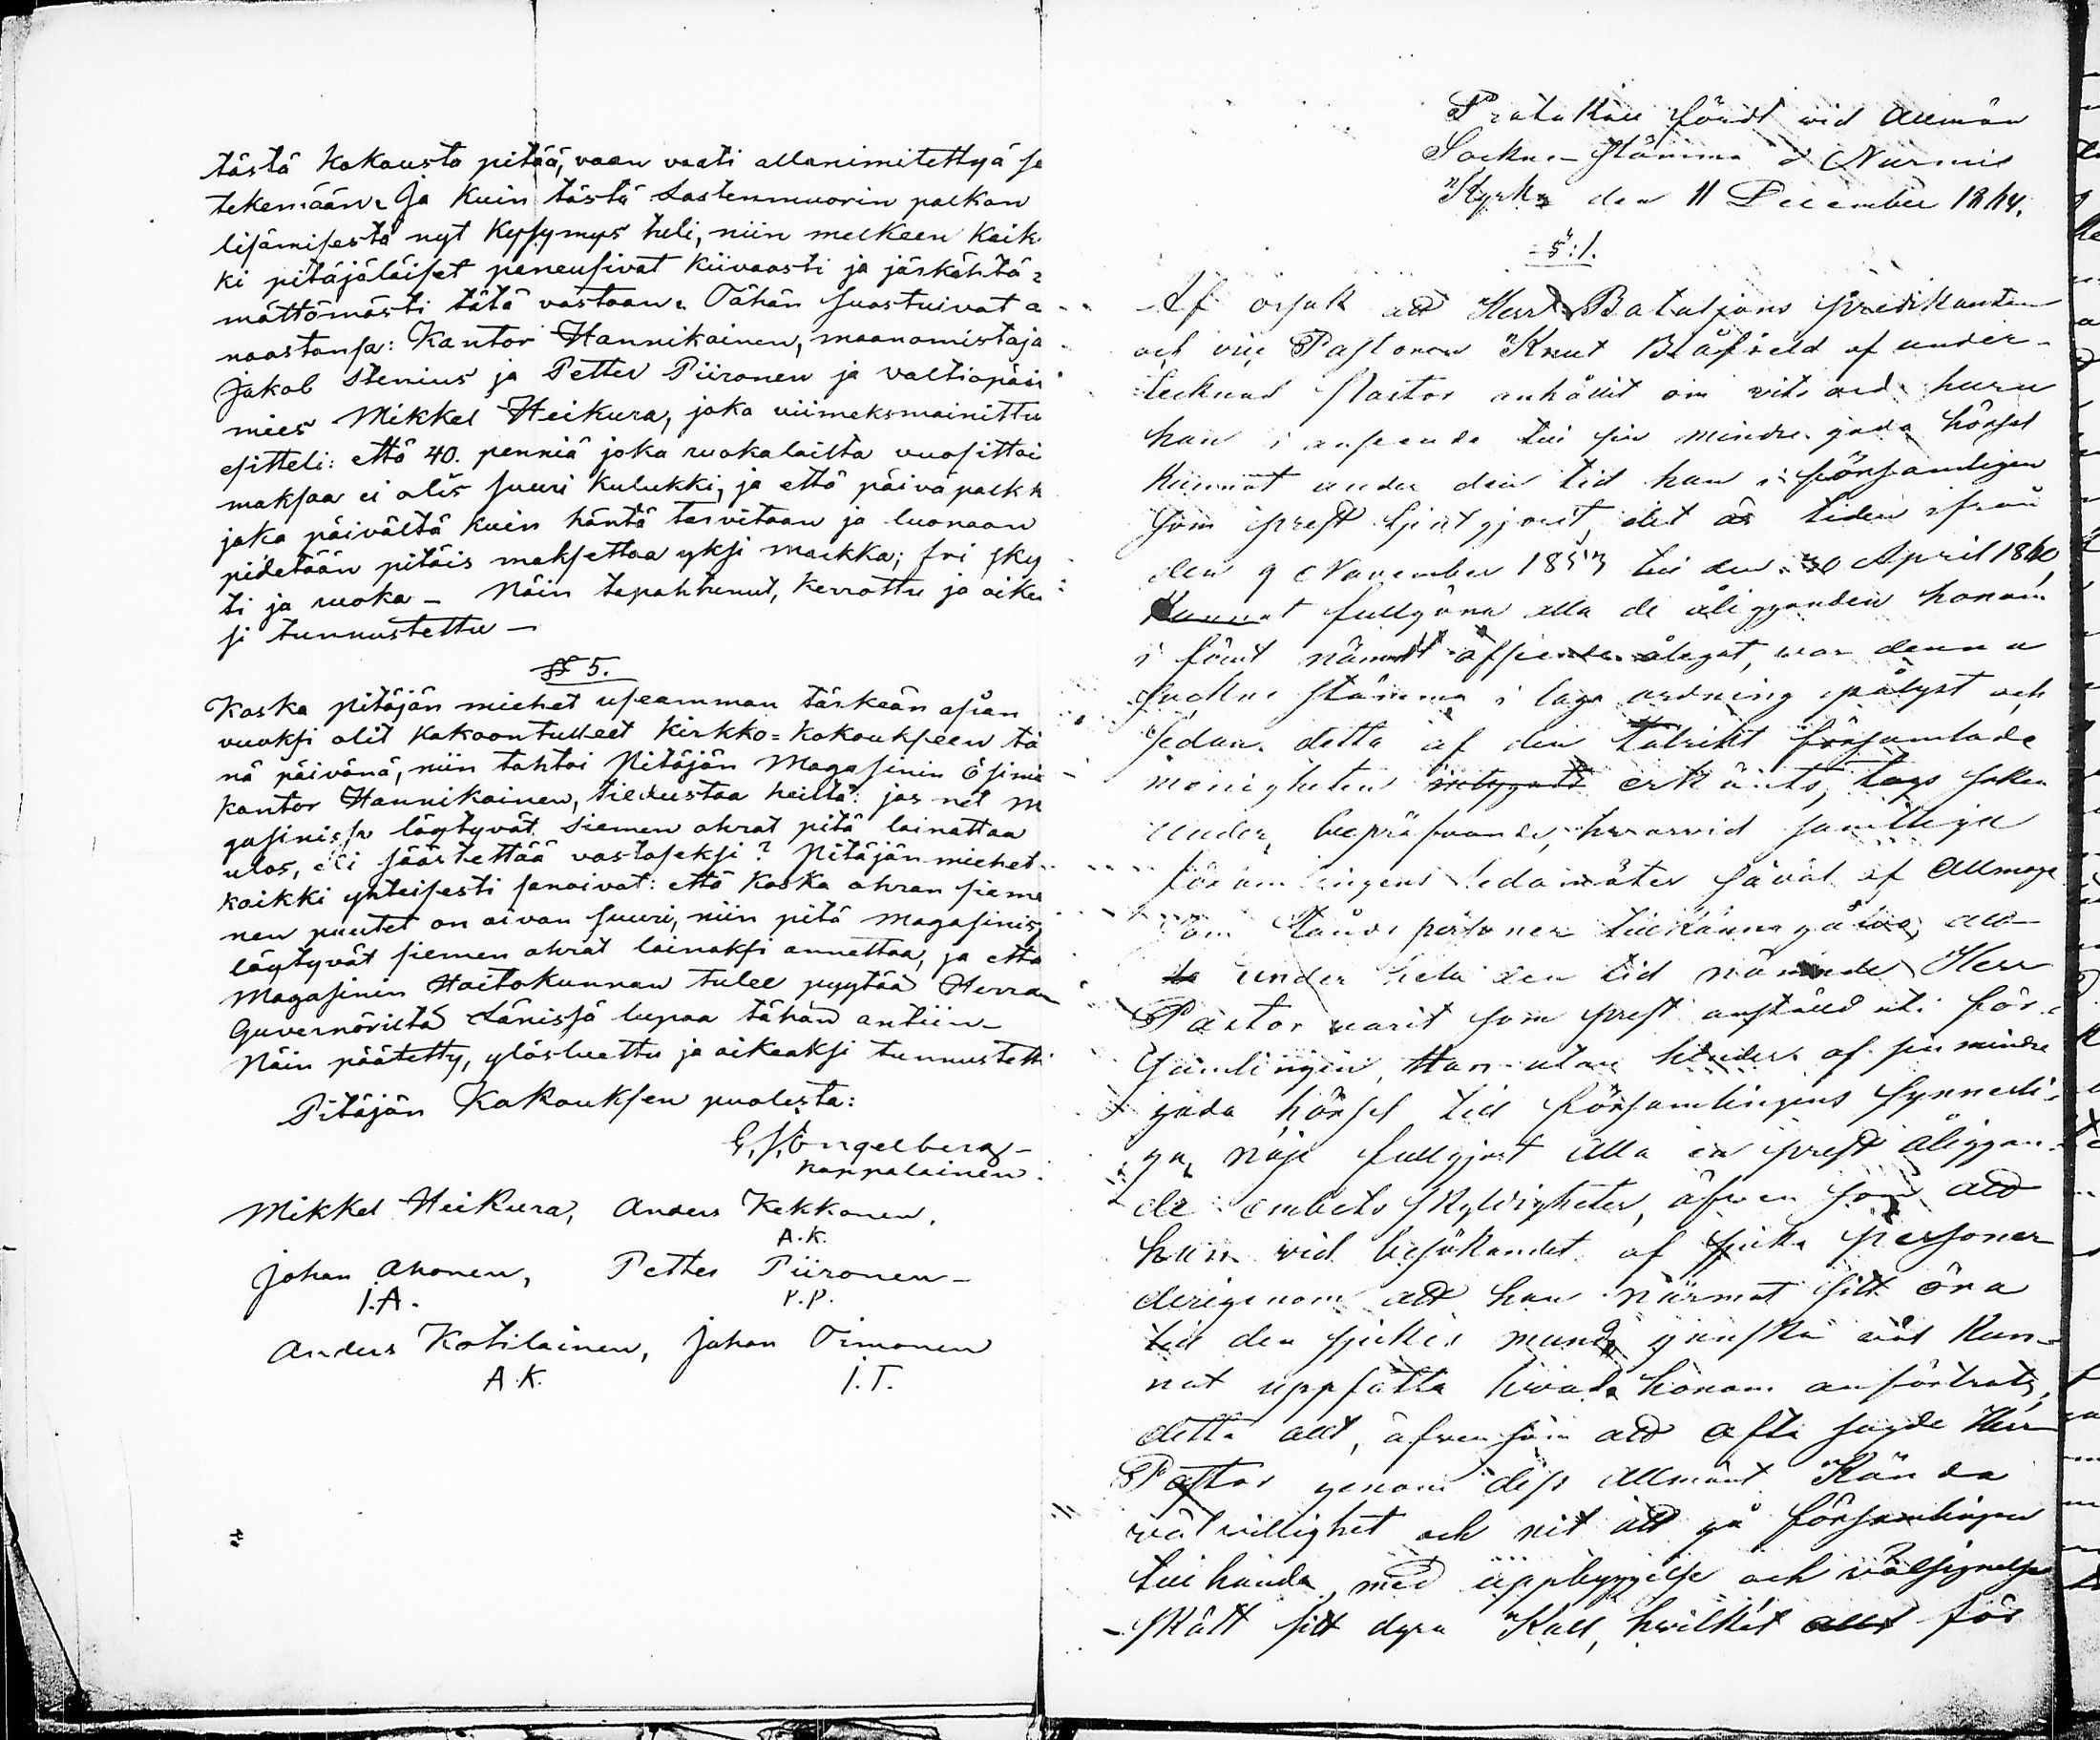 tästä Kokousta pitää, vaan vaati allanimitettyä se
tekemään. Ja Kuin tästä Lastenmuorin palkan
lisämisestä nyt Kysymys tuli, niin melkeen Kaik
ki pitäjäläiset paneusivat Kiivaasti ja järkähtä=
mättömästi tätä vastaan. Tähän suostuivat a
noastansa: Kantor Hannikainen, maanomistaja
Jakob Stenius ja Petter Piironen ja valtiopäi
mies Mikkel Heikura, joka viimeksmainittu
esitteli: että 40. penniä joka ruokalailta vuosittai
maksaa ei olis suuri Kulukki, ja että päivä palkk
joka päivältä Kuin häntä tarvitaan ja luonaan
pidetään pitäis maksettaa yksi markka; fri sky
ti ja ruoka – Näin tapahtunut, Kerrottu ja oike
si tunnustettu –
§§ 5.
Koska pitäjän miehet useamman tärkeän asian
vuoksi olit Kokoontulleet Kirkko=Kokoukseen tä
nä päivänä, niin tahtoi Pitäjän Magasinin Esimie
Kantor Hannikainen, tiedustaa heiltä: jos net m
gasinissa löytyvät siemen ohrat pitä lainattaa
ulos, eli säästettää vastaseksi? Pitäjän miehet
kaikki yhteisesti sanoivat: että koska ohran sieme
nen puutet on aivan suuri, niin pitä magasinis
löytyvät siemen ohrat lainaksi annettaa, ja että
Magasinin Hoitokunnan tulee pyytää Herran
Guvernöriltä Länissä lupaa tähän antiin –
Näin päätetty, ylösluettu ja oikeaksi tunnustettu
Pitäjän Kokouksen puolesta:
G. J. Engelberg –
Kappalainen.
Mikkel Heikura, Anders Kekkonen.
A.K.
Johan Ahonen, Petter Piironen –
J.A. P.P.
Anders Kotilainen, Johan Timonen
A.K. J.T.
Protokoll fördt vid Allmän
Sockne-stämma i Nurmis
Kyrka den 11 December 1864.
§:1.
Af orsak att Herr Bataljons predikanten
och vice Pastoren Knut Blåfield af under-
tecknad Pastor anhållit om vitsord huru
han i anseende till sin mindre goda hörsel
kunnat under den tid han i församlingen
som prest tjenstgjort, det är tiden ifrån
den 9 November 1857 till den 30 April 1860,
kunnat fullgöra alla de åligganden honom
i förut nämndt afseende ålegat, war denna
sockne stämma i laga ordning pålyst och
sedan detta af den talrikt församlade
menigheten erkänts, togs saken
under bepröfvande, hwarvid samtliga
församlingens ledamöter såväl af Allmoge
som Stånds personer tillkännagåfvo, att
under hela den tid nämnde Herr
Pastor varit som prest anställd uti för-
samlingen, Han utan hinder af sin mindre
goda hörsel till församlingens synnerli-
ga nöje fullgjort alla en prest åliggan-
de embets skyldigheter, äfven som att
han vid besökandet af sjuka personer
derigenom att han närmat sitt öra
till den sjukes mun, ganska väl kun-
nat uppfatta hvad honom anförtrotts,
detta allt, äfvensom att ofta sagde Herr
Pastor genom dess allmänt Kända
välvillighet och nit att gå församlingen
tillhanda, med uppbyggelse och välsignelse
skött sitt dyra Kall, hvilket allt för